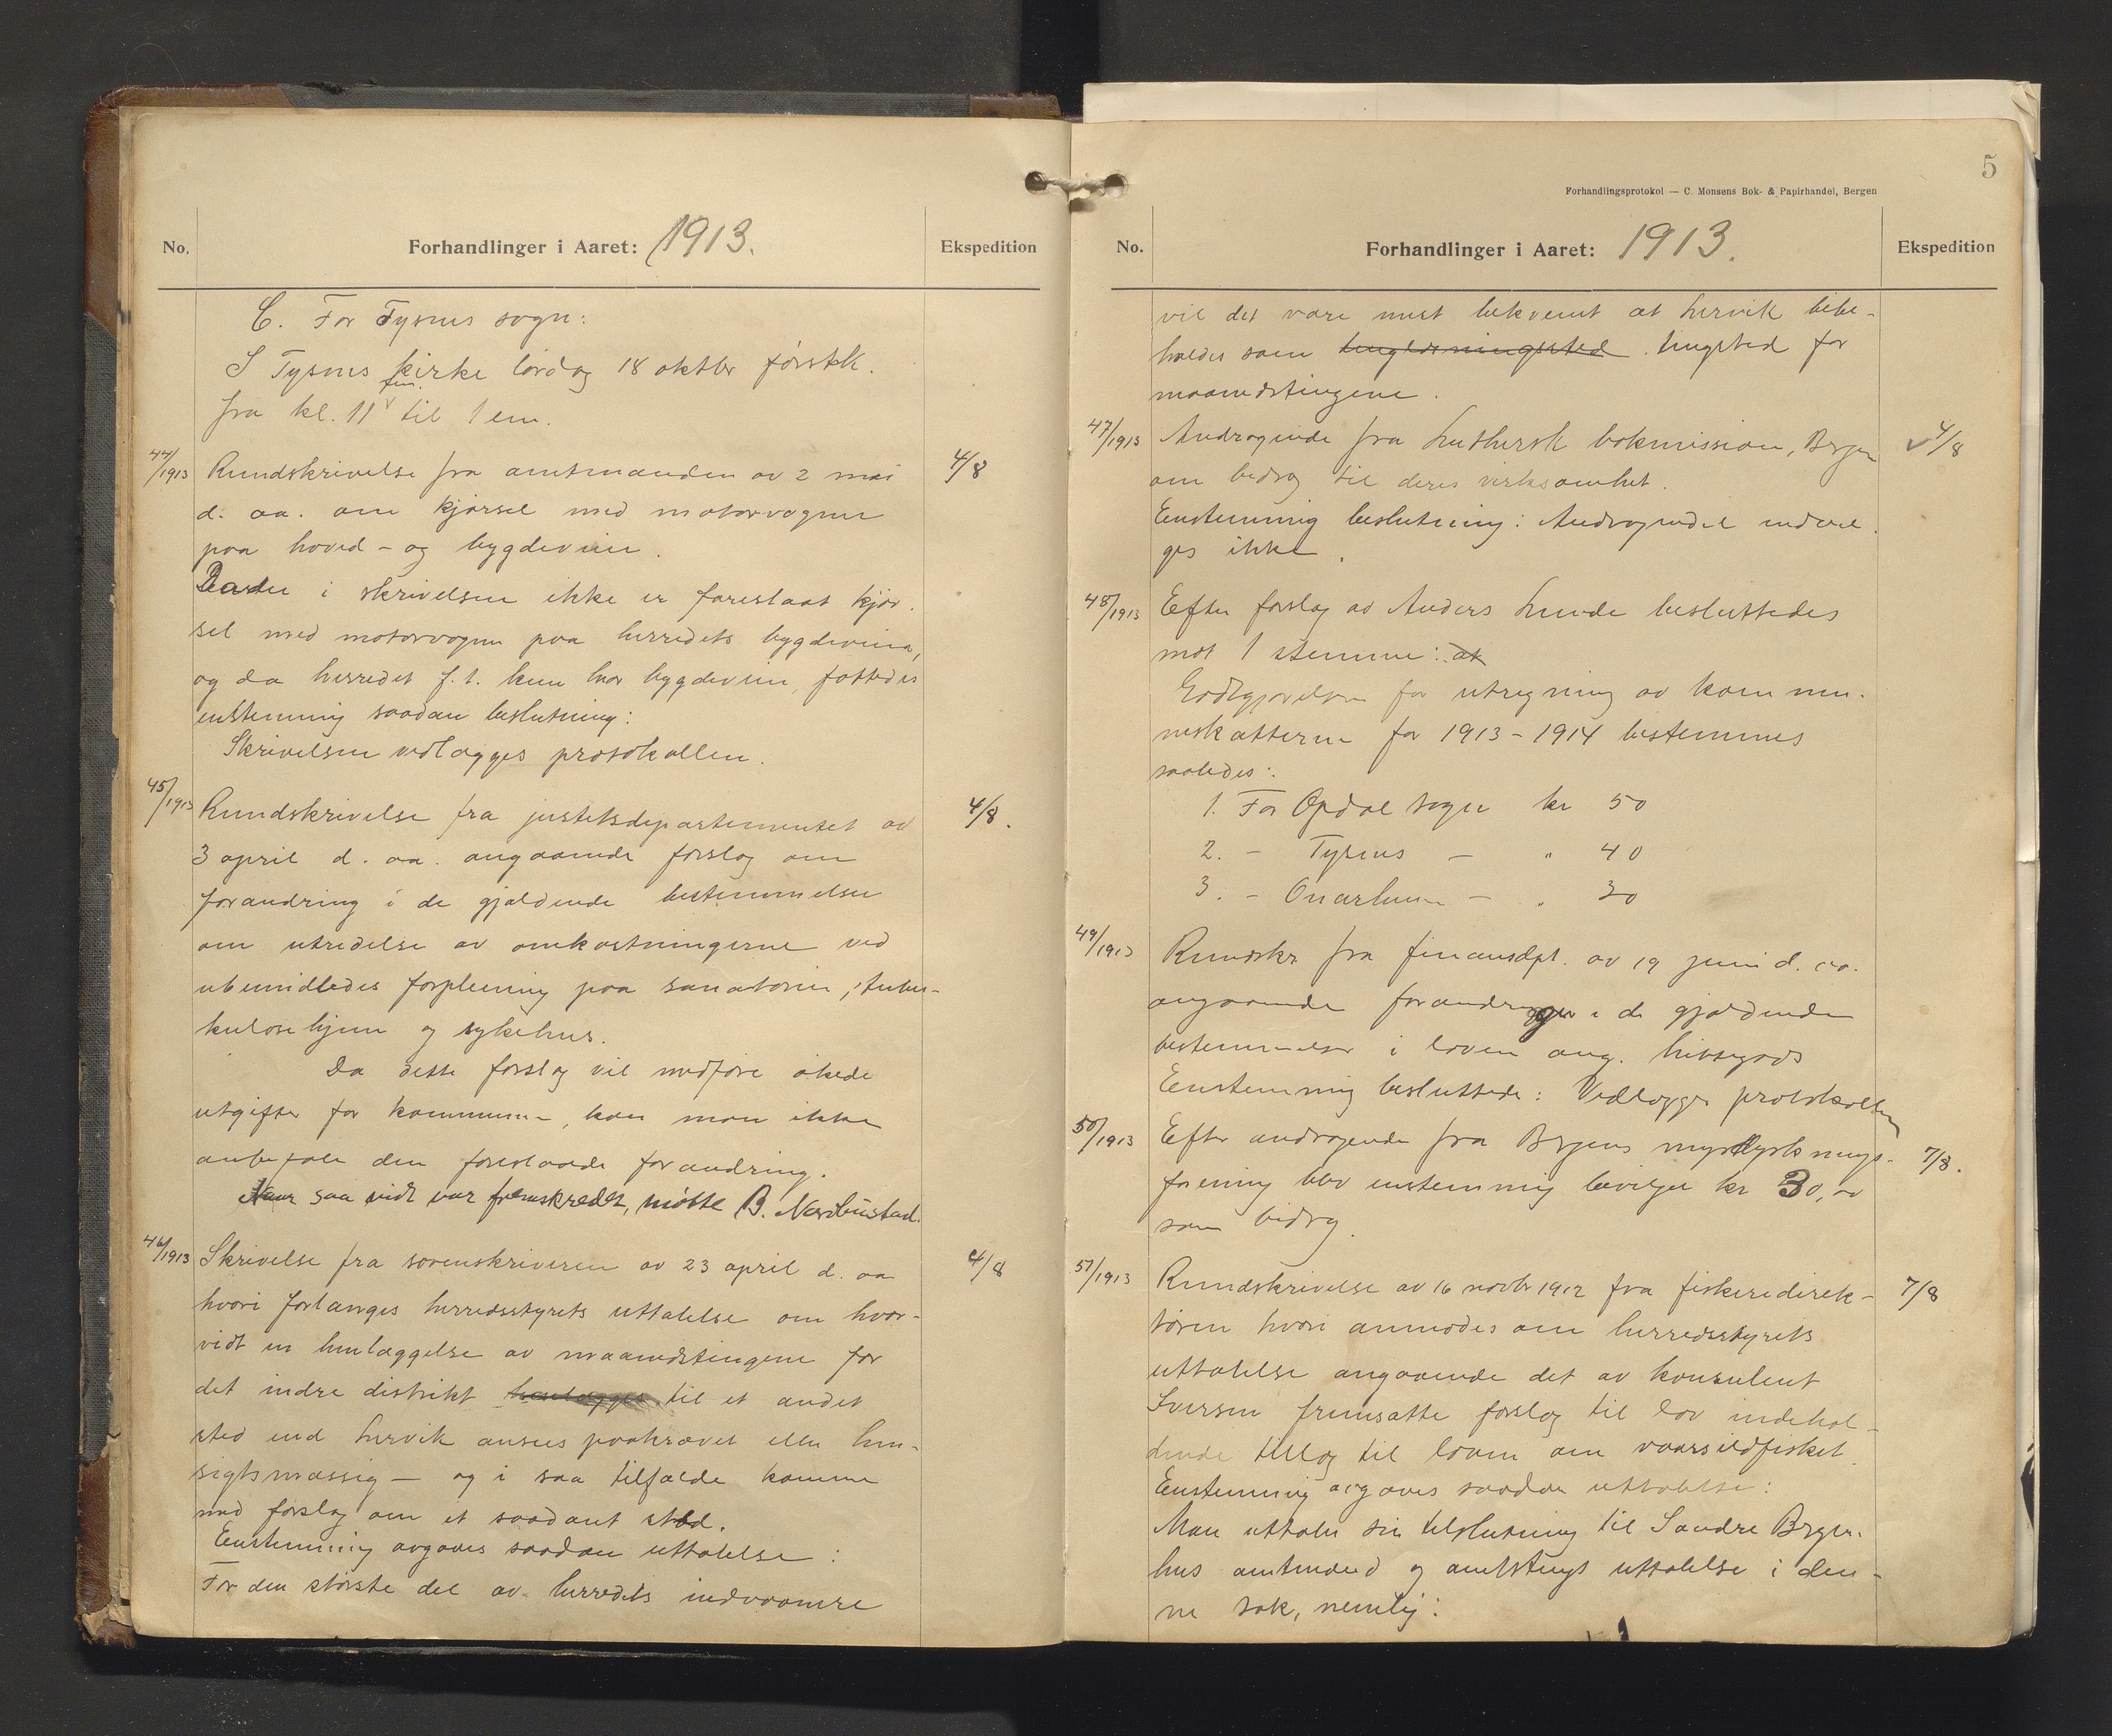 No.
Forhandlinger i Aaret: 1913.
Ekspedition
C. For Tysnes sogn:
I Tysnes kirke lørdag 18 oktbr førstk.
fra kl. 11 fm. til 1 em.
44/1913 Rundskrivelse fra amtmanden av 2 mai 4/8
d. aa. om kjørsel med motorvogner
paa hoved- og bygdeveier.
Da der i skrivelsen ikke er foreslaat kjør-
sel med motorvogner paa herredets bygdeveie,
og da herredet f. t. kun har bygdeveier, fattedes
enstemmig saadan beslutning:
Skrivelsen vedlægges protokollen.
45/1913 Rundskrivelse fra justitsdepartementet av 4/8.
3 april d. aa. angaaende forslag om
forandring i de gjældende bestemmelser
om utredelse av omkostningerne ved
ubemidledes forpleining paa sanatorier, tuber-
kulosehjem og sykehus.
Da dette forslag vil medføre økede
utgifter for kommunen, kan man ikke
anbefale den foreslaaede forandring.
Naar saa vidt var fremskredet, møtte B. Nordbustad.
46/1913 Skrivelse fra sorenskriveren av 23 april d. aa 4/8
hvori forlanges herredsstyrets uttalelse om hvor-
vidt en henlæggelse av maanedstingene for
det indre distrikt henlægges til et andet
sted end Lervik ansees paakrævet eller hen-
sigtsmæssig — og i saa tilfælde komme
med forslag om et saadant sted.
Enstemmig avgaves saadan uttalelse:
For den største del av herredets indvaanere
5
Forhandlingsprotokol — C. Monsens Bok- & Papirhandel, Bergen
No.
Forhandlinger i Aaret: 1913.
Ekspedition
vil det være mest bekvemt at Lervik bibe-
holdes som tinglæsningssted. tingsted for
maanedstingene.
47/1913 Andragende fra Luthersk bokmission, Bergen 4/8
om bidrag til deres virksomhet.
Enstemmig beslutning: Andragendet indvil-
ges ikke.
48/1913 Efter forslag av Anders Lunde besluttedes
mot 1 stemme: at
Godtgjørelsen for utregning av kommu-
neskatterne for 1913-1914 bestemmes
saaledes:
1. For Opdal sogn kr 50
2. - Tysnes - " 40
3. - Onarheim - " 30
49/1913 Rundskr fra finansdpt. av 19 juni d. aa.
angaaende forandringer i de gjældende
bestemmelser i loven ang.
Enstemmig besluttede: Vedlægges protokollen
50/1913 Efter andragende fra Bergens myrdyrknings- 7/8.
forening blev enstemmig bevilget kr 30,00
som bidrag.
51/1913 Rundskrivelse av 16 novbr 1912 fra fiskeridirek- 7/8
tøren hvori anmodes om herredsstyrets
uttalelse angaaende det av konsulent
Iversen fremsatte forslag til lov indehol-
dende tillæg til loven om vaarsildfisket.
Enstemmig avgaves saadan uttalelse:
Man uttaler sin tilslutning til Søndre Bergen-
hus amtmand og amtstings uttalelse i den-
ne sak, nemlig: